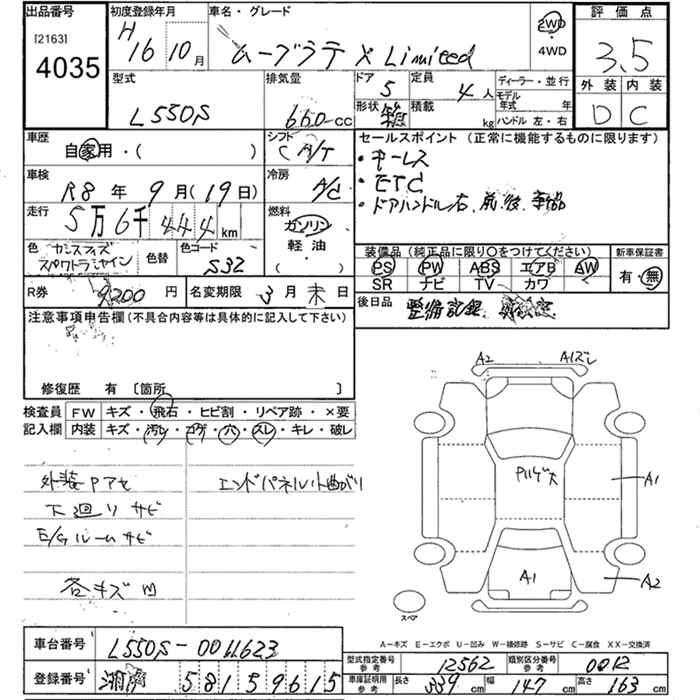 出品番号
[2163]
4035
初度登録年月
H16 10月
車名・グレード
ムーブラテ X Limited
2WD
・
4WD
評価点
3.5
外装 内装
D C
型式
L550S
排気量
660cc
ドア
5
定員
4人
形状
積載
kg
ディーラー・並行
モデル
年式 年
ハンドル 左・右
車歴
自家用・( )
シフト
C A/T
車検
R8年9月(19日)
冷房
A/C
走行
5万6千444km
燃料
ガソリン
軽油
( )
色
色替
色コード
S32
セールスポイント (正常に機能するものに限ります)
・キーレス
・ETC
・ドアハンドル右、前、後、
装備品(純正品に限り○をつけてください)
PS PW ABS エアB AW
SR ナビ TV カワ
新車保証書
有・無
R券
9200円
名変期限
3月末日
後日品
整備記録
注意事項申告欄(不具合内容等は具体的に記入して下さい)
修復歴 有 〔箇所 〕
検査員
記入欄
FW キズ・飛石・ヒビ割・リペア跡・×要
内装 キズ・汚レ・コゲ・穴・スレ・キレ・破レ
外装Pアセ
エンドパネル小曲がり
下廻りサビ
E/Gルームサビ
各キズ凹
A2
A1ズレ
A1
A1
A2
スペア
A-キズ E-エクボ U-凹み W-補修跡 S-サビ C-腐食 XX-交換済
車台番号
L550S-0011623
登録番号
581 5 9615
型式指定番号
参考
12562
類別区分番号
参考
車庫証明用
参考
長さ
339cm
幅
147cm
高さ
163cm